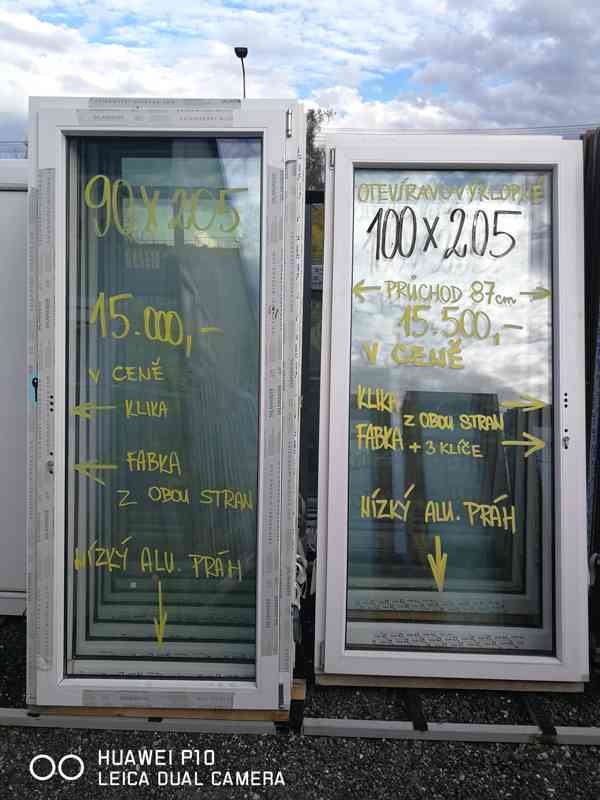 90 x 205
15.000,-
V CENĚ
KLIKA
FABKA
Z OBOU STRAN
NÍZKÝ ALU. PRÁH
OTEVÍRAVO VÝKLOPNÉ
100 x 205
PRŮCHOD 87cm
15.500,-
V CENĚ
KLIKA
Z OBOU STRAN
FABKA + 3 KLÍČE
NÍZKÝ ALU. PRÁH
HUAWEI P10
LEICA DUAL CAMERA